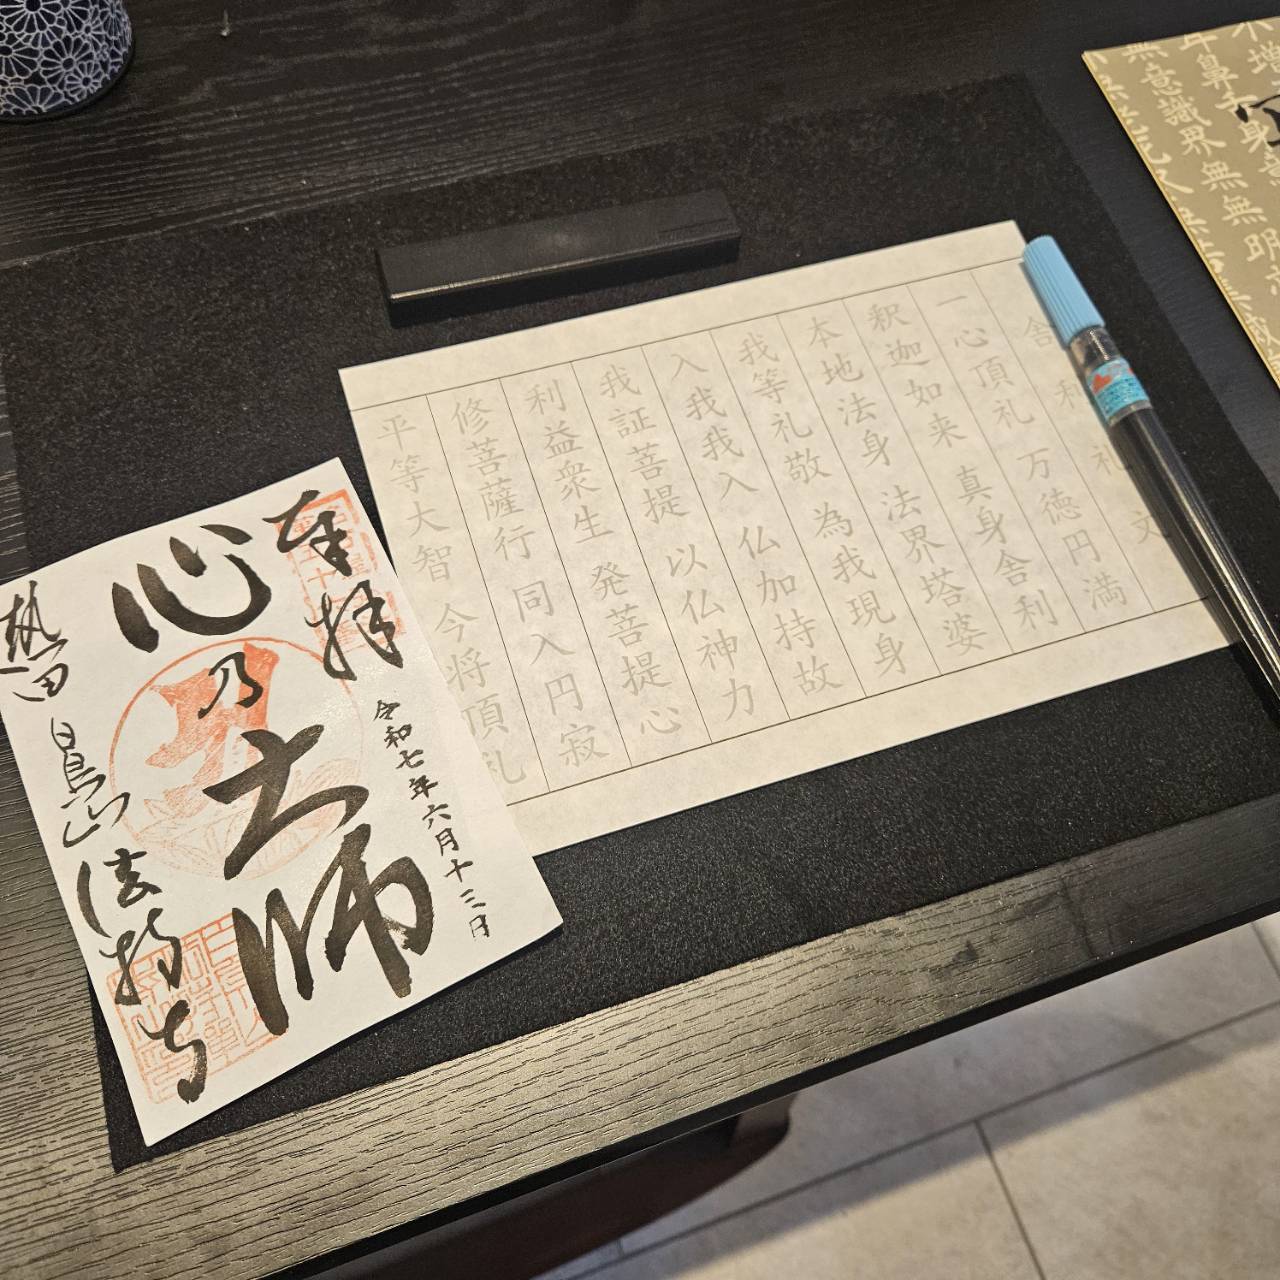 不増
耳鼻舌身意
無意識界無無明
舎利礼文
一心頂礼 万徳円満
釈迦如来 真身舎利
本地法身 法界塔婆
我等礼敬 為我現身
入我我入 仏加持故
我証菩提 以仏神力
利益衆生 発菩提心
修菩薩行 同入円寂
平等大智 今将頂礼
奉拝
令和七年六月十三日
心乃大師
熱田 白鳥山 法持寺